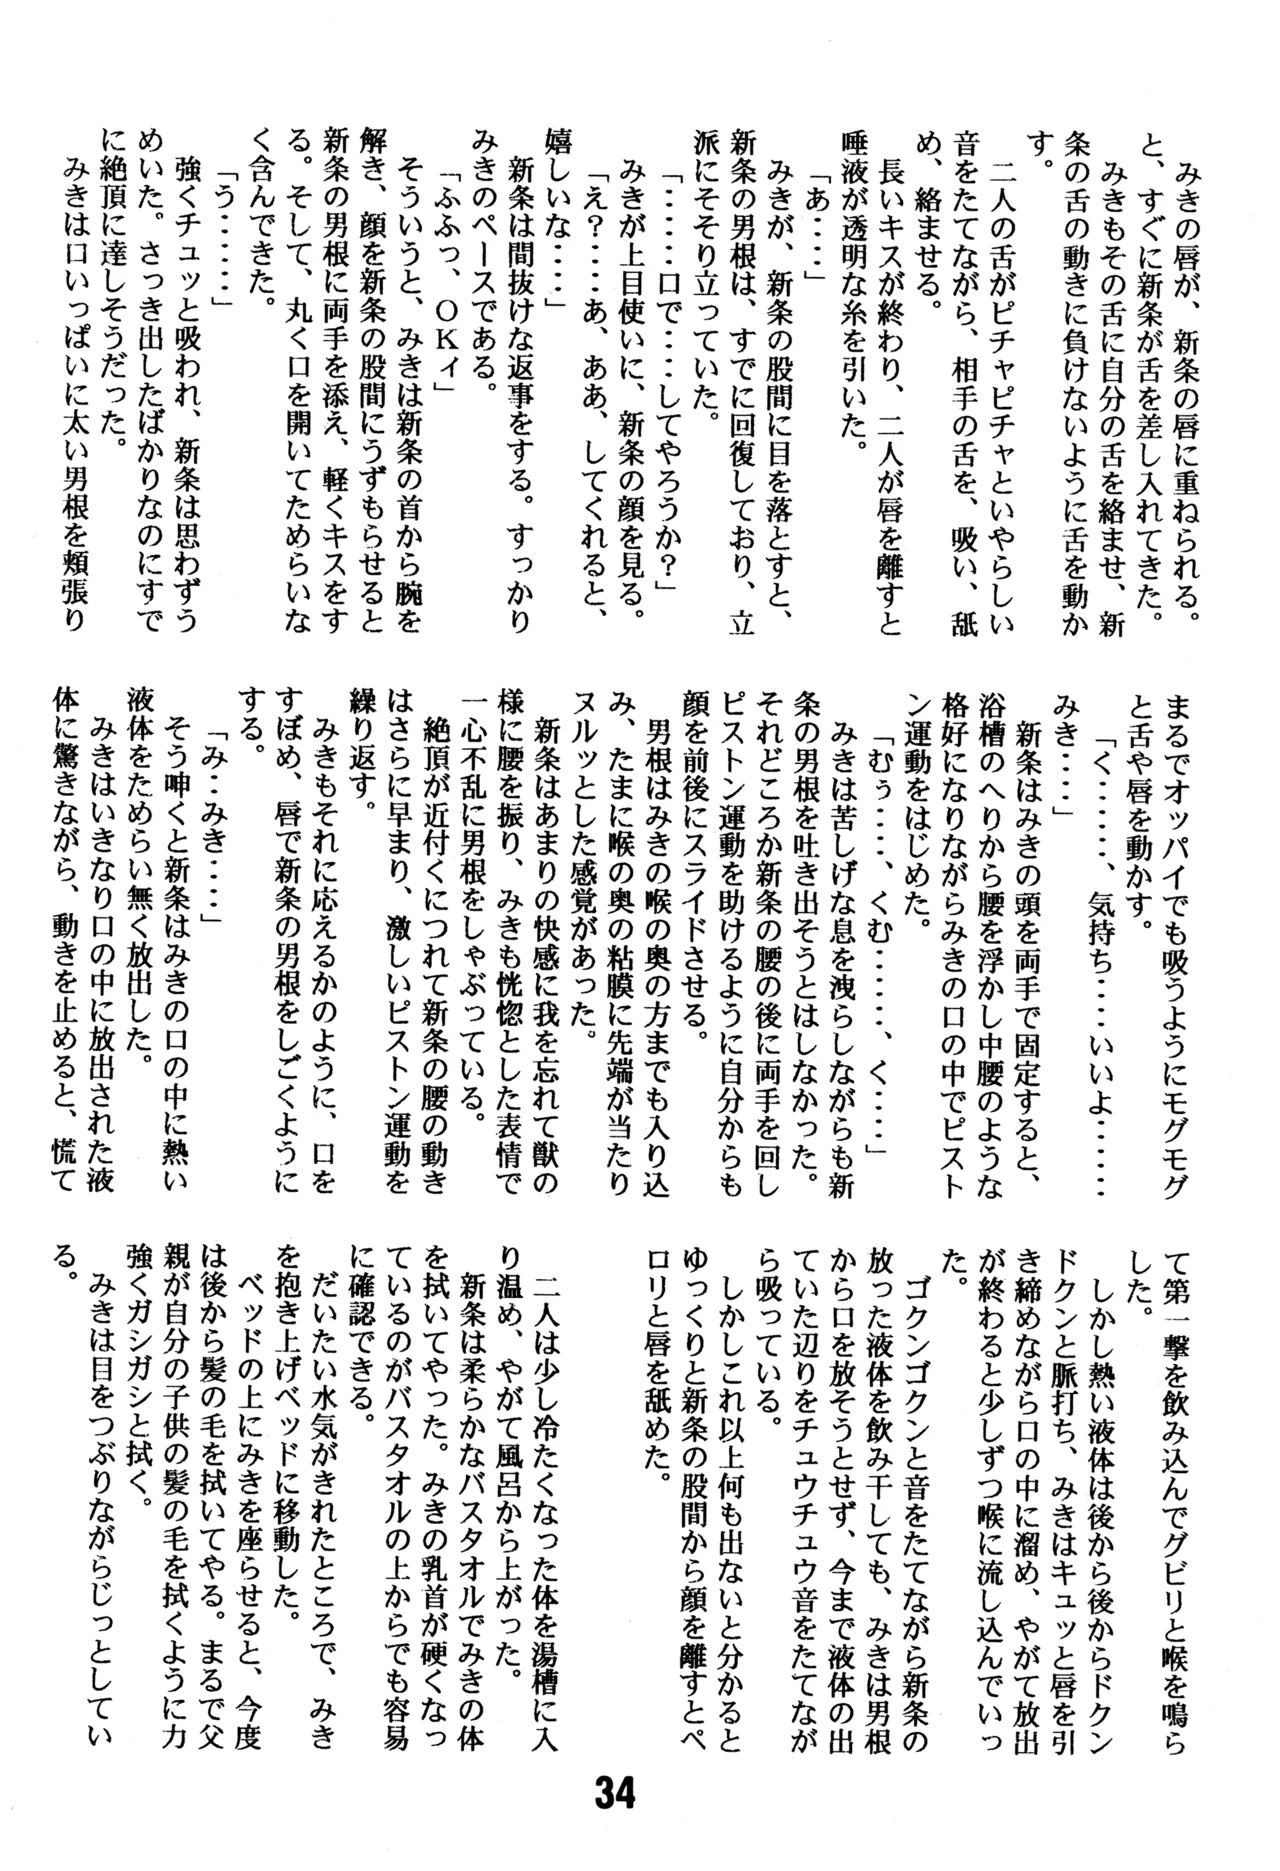 みきの唇が、新条の唇に重ねられる。
と、すぐに新条が舌を差し入れてきた。
みきもその舌に自分の舌を絡ませ、新
条の舌の動きに負けないように舌を動か
す。
二人の舌がピチャピチャといやらしい
音をたてながら、相手の舌を、吸い、舐
め、絡ませる。
長いキスが終わり、二人が唇を離すと
唾液が透明な糸を引いた。
「あ‥‥」
みきが、新条の股間に目を落とすと、
新条の男根は、すでに回復しており、立
派にそそり立っていた。
「‥‥‥口で‥‥してやろうか？」
みきが上目使いに、新条の顔を見る。
「え？‥‥あ、ああ、してくれると、
嬉しいな‥‥」
新条は間抜けな返事をする。すっかり
みきのペースである。
「ふふっ、ＯＫィ」
そういうと、みきは新条の首から腕を
解き、顔を新条の股間にうずもらせると
新条の男根に両手を添え、軽くキスをす
る。そして、丸く口を開いてためらいな
く含んできた。
「う‥‥‥」
強くチュッと吸われ、新条は思わずう
めいた。さっき出したばかりなのにすで
に絶頂に達しそうだった。
みきは口いっぱいに太い男根を頬張り
まるでオッパイでも吸うようにモグモグ
と舌や唇を動かす。
「く‥‥‥、気持ち‥‥いいよ‥‥‥
みき‥‥」
新条はみきの頭を両手で固定すると、
浴槽のへりから腰を浮かし中腰のような
格好になりながらみきの口の中でピスト
ン運動をはじめた。
「むぅ‥‥、くむ‥‥‥、く‥‥」
みきは苦しげな息を洩らしながらも新
条の男根を吐き出そうとはしなかった。
それどころか新条の腰の後に両手を回し
ピストン運動を助けるように自分からも
顔を前後にスライドさせる。
男根はみきの喉の奥の方までも入り込
み、たまに喉の奥の粘膜に先端が当たり
ヌルッとした感覚があった。
新条はあまりの快感に我を忘れて獣の
様に腰を振り、みきも恍惚とした表情で
一心不乱に男根をしゃぶっている。
絶頂が近付くにつれて新条の腰の動き
はさらに早まり、激しいピストン運動を
繰り返す。
みきもそれに応えるかのように、口を
すぼめ、唇で新条の男根をしごくように
する。
「み‥みき‥‥」
そう呻くと新条はみきの口の中に熱い
液体をためらい無く放出した。
みきはいきなり口の中に放出された液
体に驚きながら、動きを止めると、慌て
て第一撃を飲み込んでグビリと喉を鳴ら
した。
しかし熱い液体は後から後からドクン
ドクンと脈打ち、みきはキュッと唇を引
き締めながら口の中に溜め、やがて放出
が終わると少しずつ喉に流し込んでいっ
た。
ゴクンゴクンと音をたてながら新条の
放った液体を飲み干しても、みきは男根
から口を放そうとせず、今まで液体の出
ていた辺りをチュウチュウ音をたてなが
ら吸っている。
しかしこれ以上何も出ないと分かると
ゆっくりと新条の股間から顔を離すとペ
ロリと唇を舐めた。
二人は少し冷たくなった体を湯槽に入
り温め、やがて風呂から上がった。
新条は柔らかなバスタオルでみきの体
を拭いてやった。みきの乳首が硬くなっ
ているのがバスタオルの上からでも容易
に確認できる。
だいたい水気がきれたところで、みき
を抱き上げベッドに移動した。
ベッドの上にみきを座らせると、今度
は後から髪の毛を拭いてやる。まるで父
親が自分の子供の髪の毛を拭くように力
強くガシガシと拭く。
みきは目をつぶりながらじっとしてい
る。
34